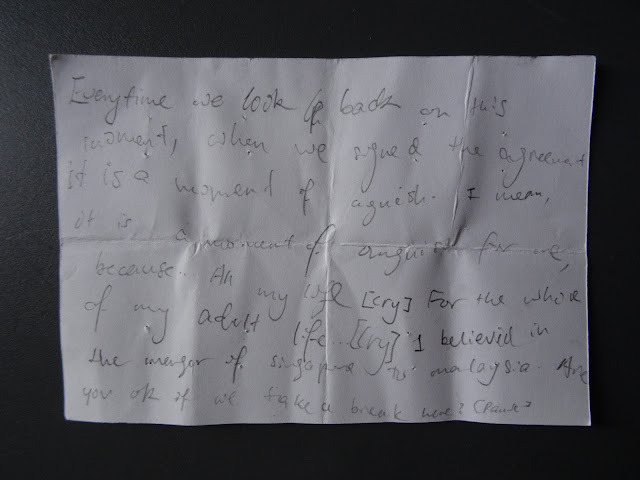 Everytime we look back on this
moment, when we signed the agreement
it is a moment of aguish. I mean,
it is, a moment of anguish for me,
because.. All my life [cry] For the whole
of my adult life... [cry] I believed in
the merger of singapore to malaysia. Are
you ok if we take a break here? [Pause]